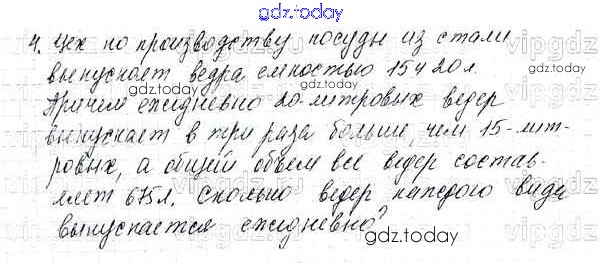 gdz.today
4. Цех по производству посуды из стали
выпускает ведра емкостью 15 и 20 л.
gdz.today
Причем ежедневно 20-литровых ведер
выпускает в три раза больше, чем 15-лит-
ровых, а общий объем все ведер состав-
ляет 675 л. Сколько ведер каждого вида
выпускается ежедневно?
gdz.today